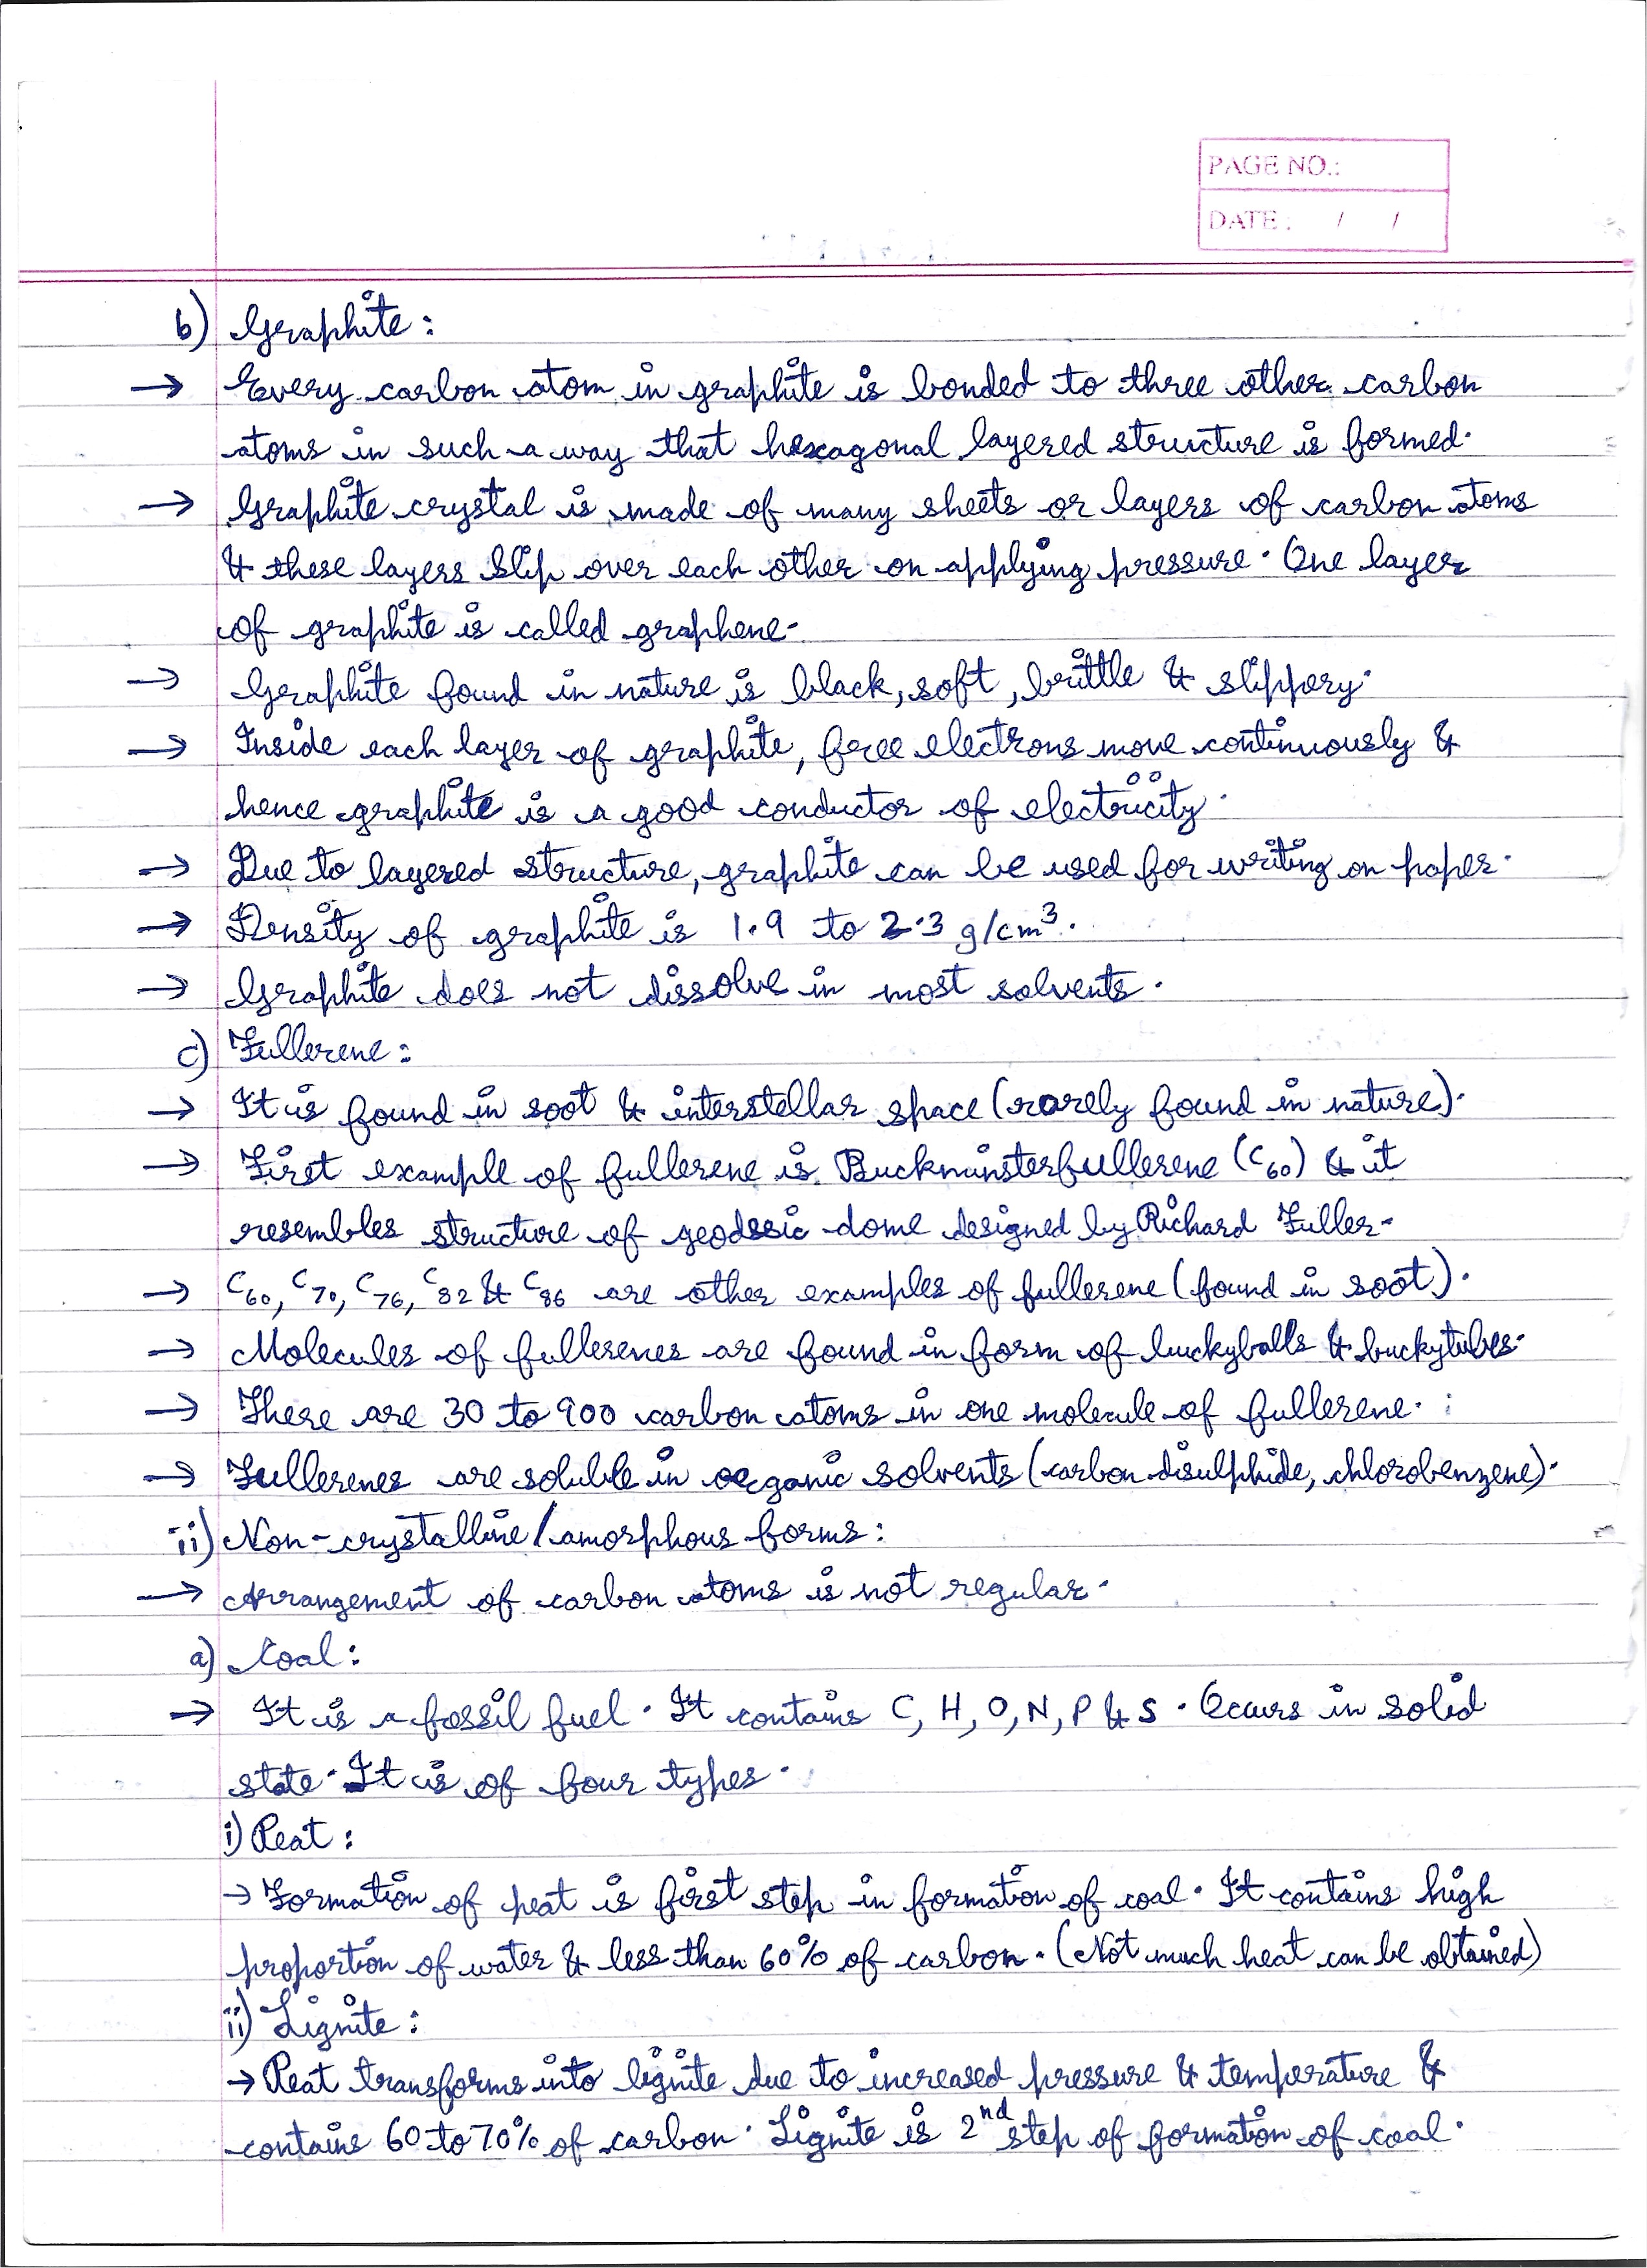 PAGE NO.:
DATE: / /
b) Graphite:
→ Every carbon atom in graphite is bonded to three other carbon
atoms in such a way that hexagonal layered structure is formed.
→ Graphite crystal is made of many sheets or layers of carbon atoms
& these layers slip over each other on applying pressure. One layer
of graphite is called graphene.
→ Graphite found in nature is black, soft, brittle & slippery.
→ Inside each layer of graphite, free electrons move continuously &
hence graphite is a good conductor of electricity.
→ Due to layered structure, graphite can be used for writing on paper.
→ Density of graphite is 1.9 to 2.3 g/cm³.
→ Graphite does not dissolve in most solvents.
c) Fullerene:
→ It is found in soot & interstellar space (rarely found in nature).
→ First example of fullerene is Buckminsterfullerene (C₆₀) & it
resembles structure of geodesic dome designed by Richard Fuller.
→ C₆₀, C₇₀, C₇₆, C₈₂ & C₈₆ are other examples of fullerene (found in soot).
→ Molecules of fullerenes are found in form of buckyballs & buckytubes.
→ There are 30 to 900 carbon atoms in one molecule of fullerene.
→ Fullerenes are soluble in organic solvents (carbon disulphide, chlorobenzene).
ii) Non-crystalline/amorphous forms:
→ Arrangement of carbon atoms is not regular.
a) Coal:
→ It is a fossil fuel. It contains C, H, O, N, P & S. Occurs in solid
state. It is of four types.
i) Peat:
→ Formation of peat is first step in formation of coal. It contains high
proportion of water & less than 60% of carbon. (Not much heat can be obtained)
ii) Lignite:
→ Peat transforms into lignite due to increased pressure & temperature &
contains 60 to 70% of carbon. Lignite is 2nd step of formation of coal.